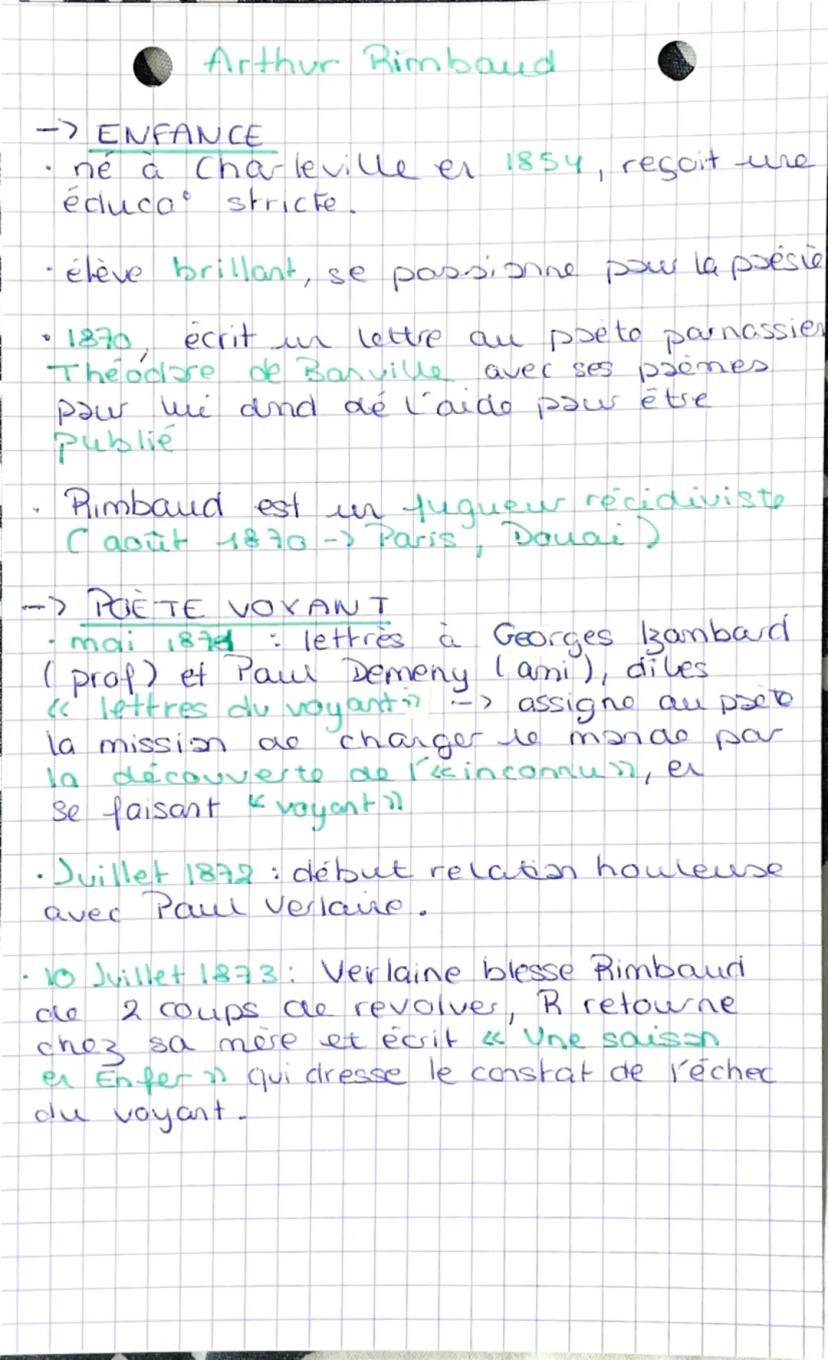 Arthur Rimbaud
-> ENFANCE
· né à Charleville en 1854, reçoit une
éduca° stricte.
· élève brillant, se passionne pour la poésie
· 1870, écrit un lettre au poète parnassien
Théodore de Banville avec ses poèmes
pour lui dmd dé l'aide pour être
publié
· Rimbaud est un fugueur récidiviste
(août 1870 -> Paris, Douai)
-> POÈTE VOYANT
· mai 1871 : lettrès à Georges Izambard
(prof) et Paul Demeny (ami), dites
« lettres du voyant » -> assigne au poète
la mission de changer le monde par
la découverte de l'« inconnu », en
se faisant « voyant »
· Juillet 1872 : début relation houleuse
avec Paul Verlaine.
· 10 Juillet 1873 : Verlaine blesse Rimbaud
de 2 coups de revolver, R retourne
chez sa mère et écrit « Une saison
en Enfer » qui dresse le constat de l'échec
du voyant.